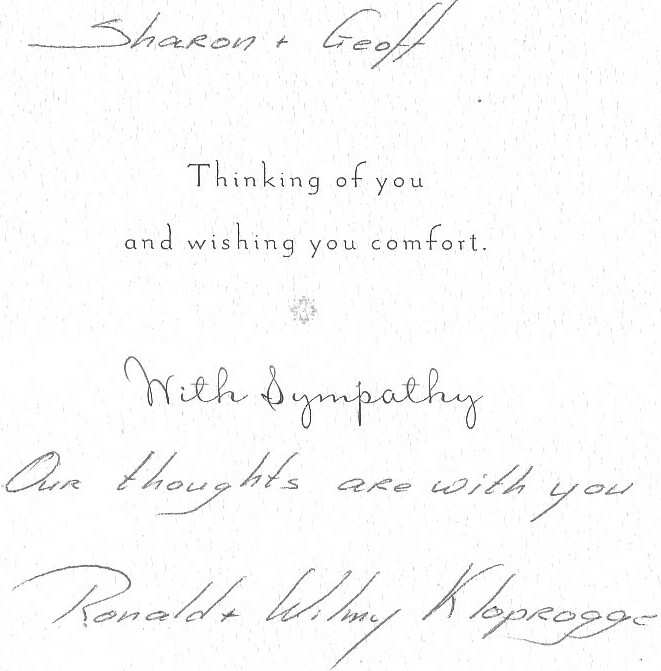 Sharon + Geoff
Thinking of you
and wishing you comfort.
With Sympathy
Our thoughts are with you
Ronald + Wilmy Kloprogge